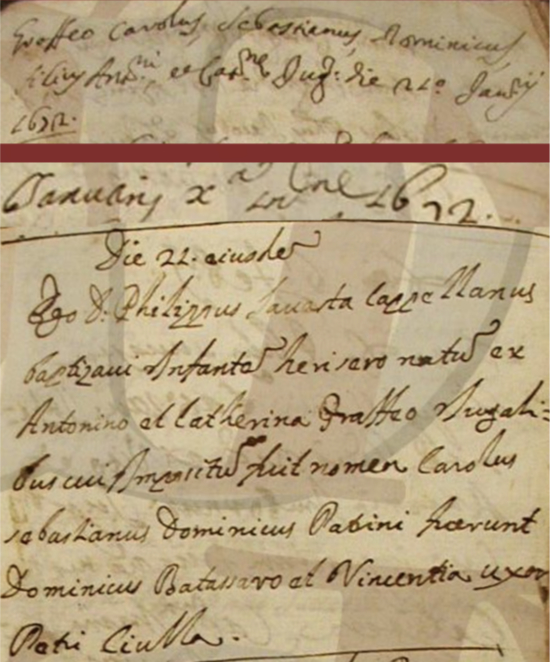 Graffeo Carolus, Sebastianus, Dominicus
filius Ant.ni et Cat.ne Jug: die 21º Janrij
1672.
Januarij x.a Ind.ne 1672.
Die 21. eiusdē
Ego D. Philippus Cappellanus
baptizaui Infantē heri sero natū ex
Antonino et Catherina Graffeo Iugali=
bus cui Impositū fuit nomen Carolus
sebastianus Dominicus Patrini fuerunt
Dominicus Batassaro et Vincentia uxor
Petri Ciulla.